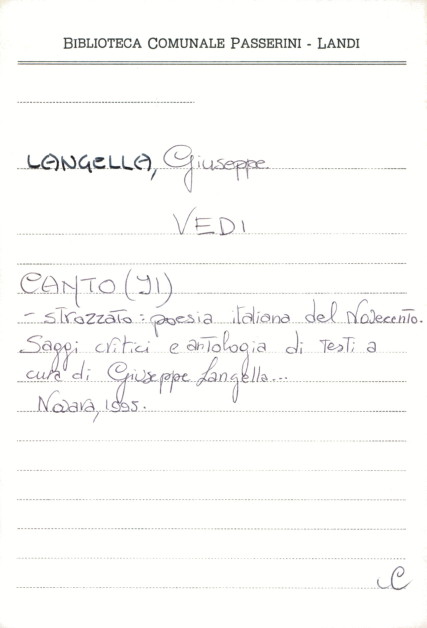 BIBLIOTECA COMUNALE PASSERINI - LANDI
LANGELLA, Giuseppe
VEDI
CANTO (Il)
- strozzato : poesia italiana del Novecento.
Saggi critici e antologia di testi a
cura di Giuseppe Langella...
Novara, 1995.